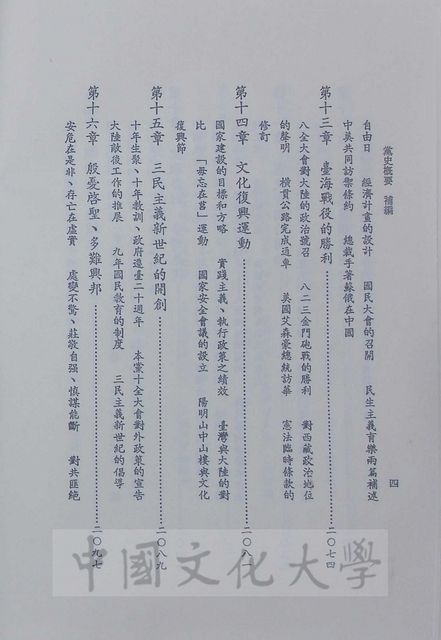 黨史概要　補編
四
自由日　經濟計畫的設計　國民大會的召開　民生主義育樂兩篇補述
中美共同訪禦條約　總裁手著蘇俄在中國
第十三章　臺海戰役的勝利……二〇七四
八全大會對大陸的政治號召　八二三金門砲戰的勝利　對西藏政治地位
的聲明　橫貫公路完成通車　美國艾森豪總統訪華　憲法臨時條款的
修訂
第十四章　文化復興運動……二〇八一
國家建設的目標和方略　實踐主義、執行政策之績效　臺灣與大陸的對
比　「毋忘在莒」運動　國家安全會議的設立　陽明山中山樓與文化
復興節
第十五章　三民主義新世紀的開創……二〇八九
十年生聚、十年教訓、政府遷臺二十週年　本黨十全大會對外政策的宣告
大陸敵後工作的推展　九年國民教育的制度　三民主義新世紀的倡導
第十六章　殷憂啓聖、多難興邦……二〇九七
安危在是非、存亡在虛實　處變不驚、莊敬自强、慎謀能斷　對共匪絕
中國文化大學